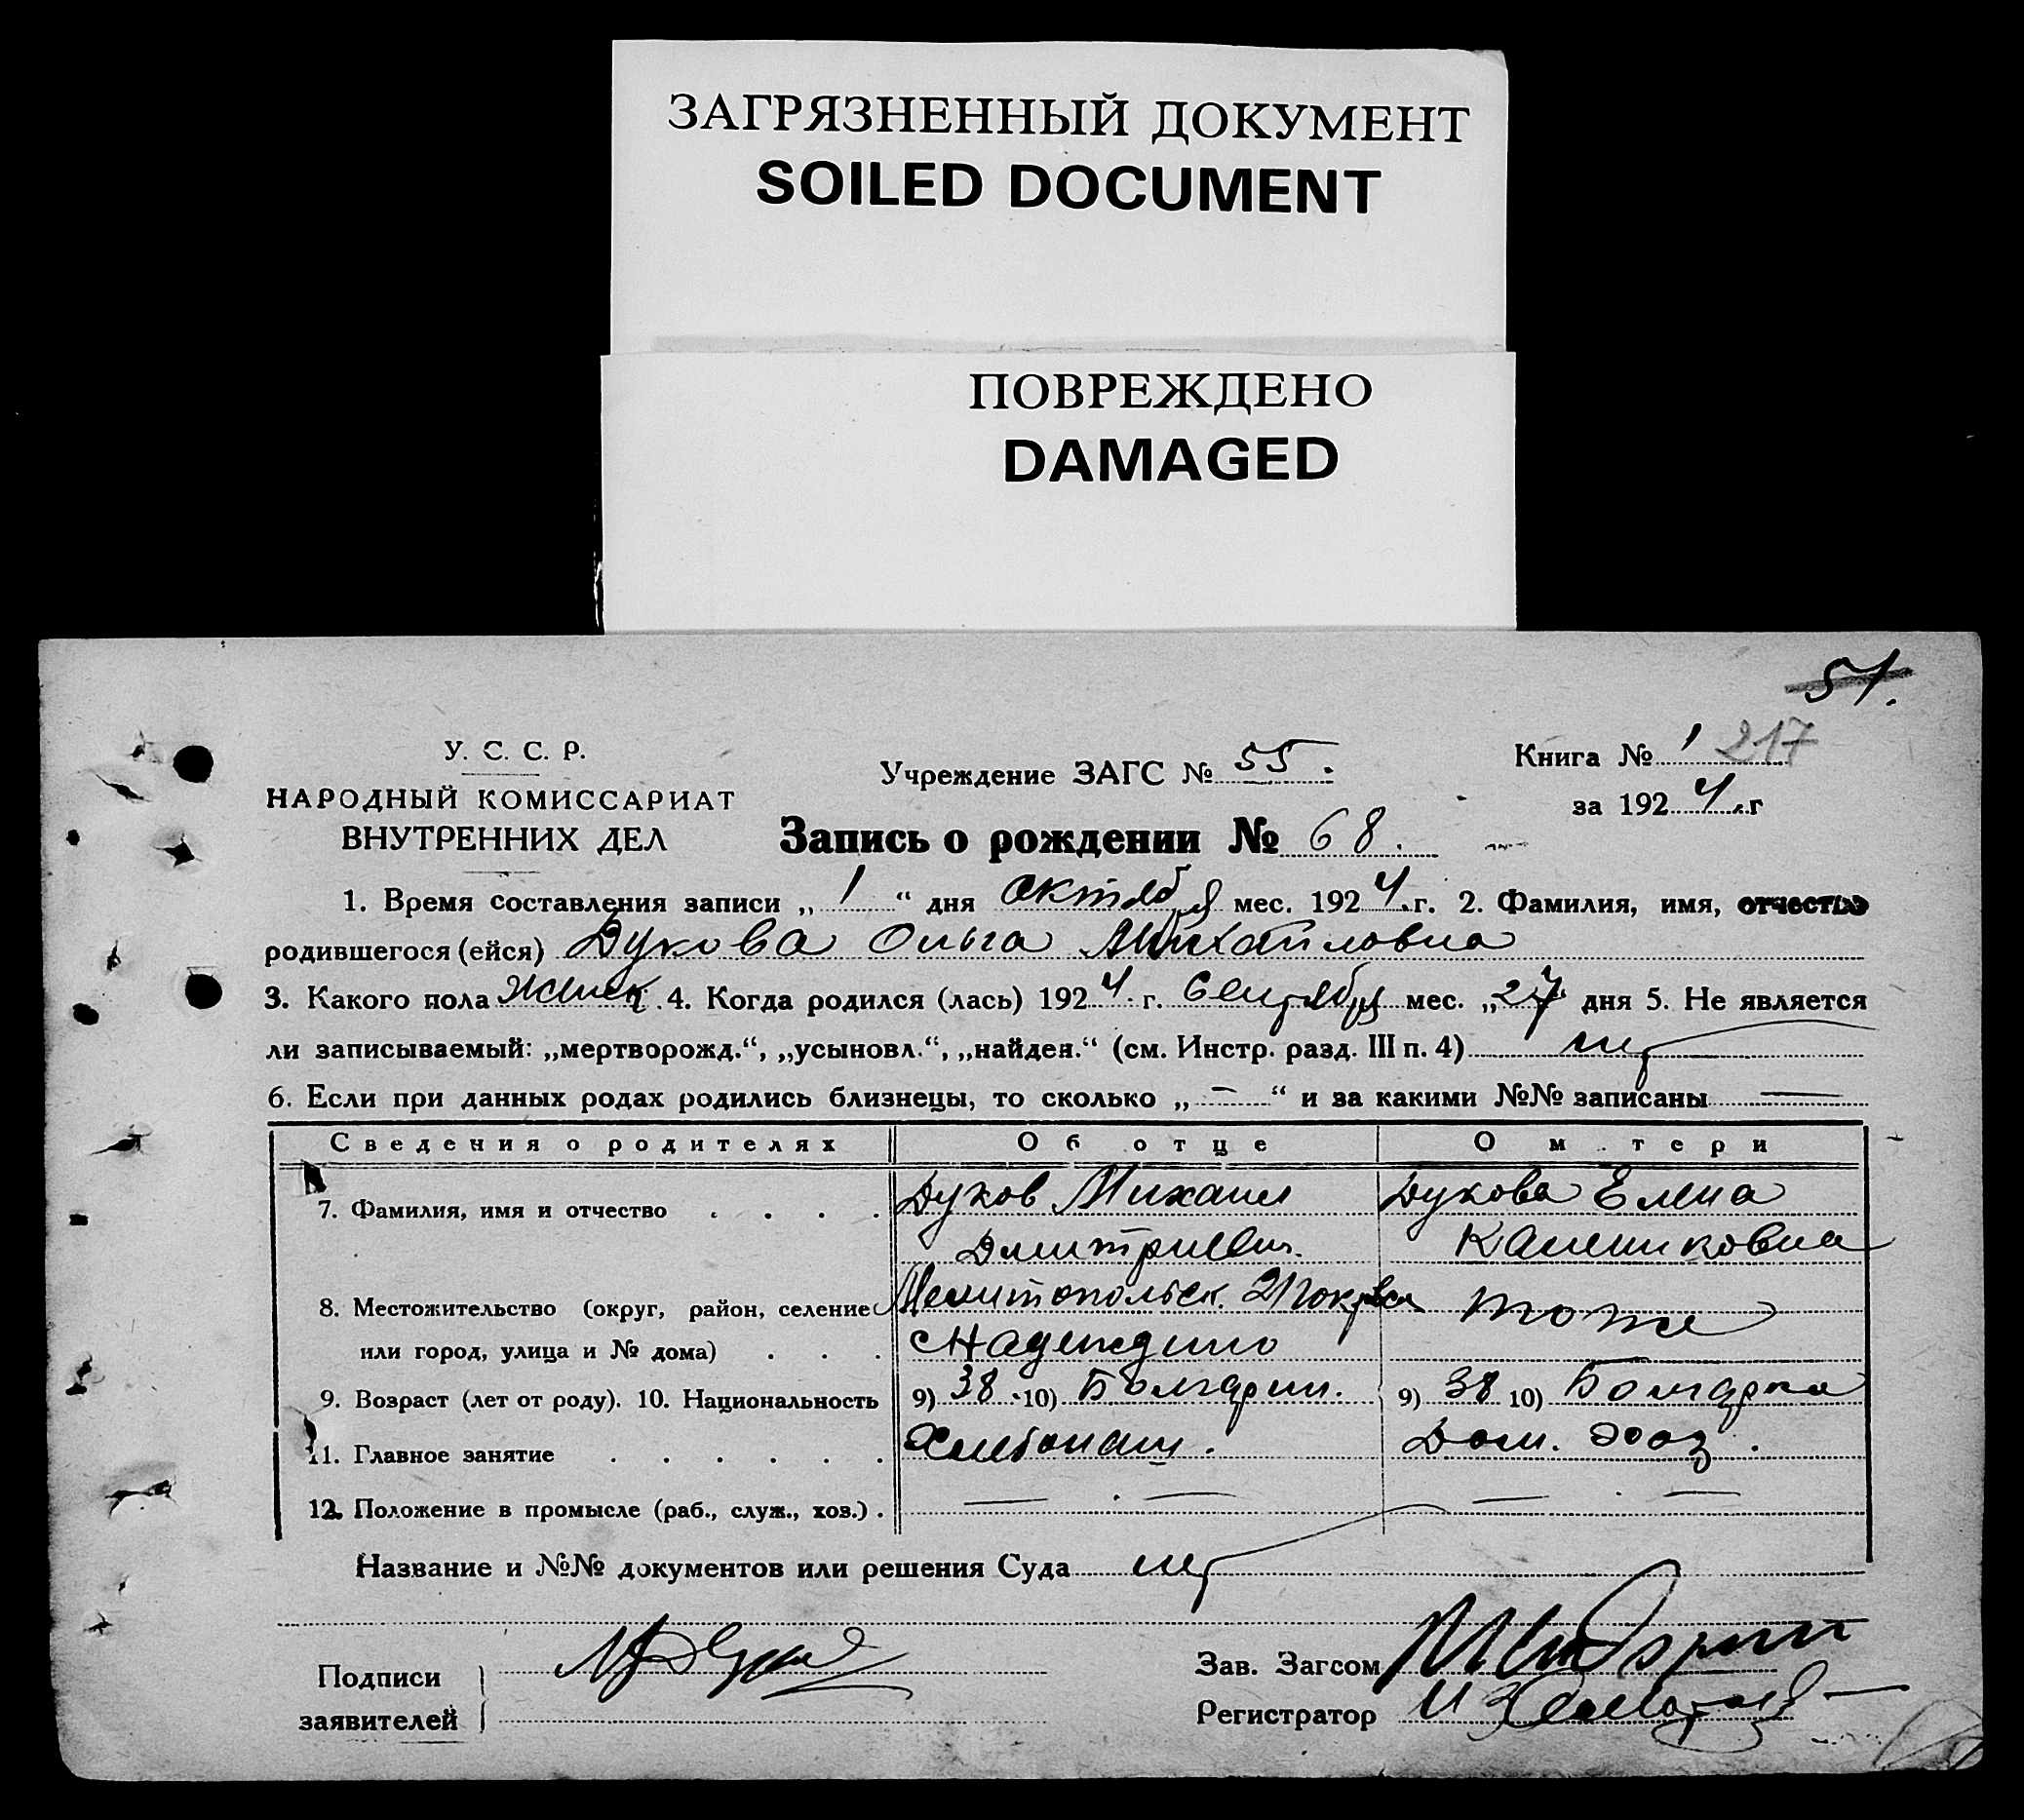 ЗАГРЯЗНЕННЫЙ ДОКУМЕНТ
SOILED DOCUMENT
ПОВРЕЖДЕНО
DAMAGED
51.
У. С. С. Р.
НАРОДНЫЙ КОМИССАРИАТ
ВНУТРЕННИХ ДЕЛ
Учреждение ЗАГС № 55.
Книга № 1 217
за 1924 г
Запись о рождении № 68.
1. Время составления записи „ 1 “ дня октября мес. 1924 г. 2. Фамилия, имя, отчество
родившегося (ейся) Дукова Ольга Михайловна
3. Какого пола женск 4. Когда родился (лась) 1924 г. Сентября мес. „27 дня 5. Не является
ли записываемый: „мертворожд.“, „усыновл.“, „найден.“ (см. Инстр. разд. III п. 4) нет
6. Если при данных родах родились близнецы, то сколько „ — “ и за какими №№ записаны —
Сведения о родителях Об отце О м тери
7. Фамилия, имя и отчество . . . . Дуков Михаил Дукова Елена
Дмитриевич.
8. Местожительство (округ, район, селение Мелитопольск. тоже
или город, улица и № дома) . . . с Надеждино
9. Возраст (лет от роду). 10. Национальность 9) 38 10) Болгарин. 9) 38 10) Болгарка
11. Главное занятие . . . . . . Хлебопаш. Дом. Хоз.
12. Положение в промысле (раб., служ., хоз.) . — . — — . —
Название и №№ документов или решения Суда нет
Подписи
заявителей
Зав. Загсом
Регистратор